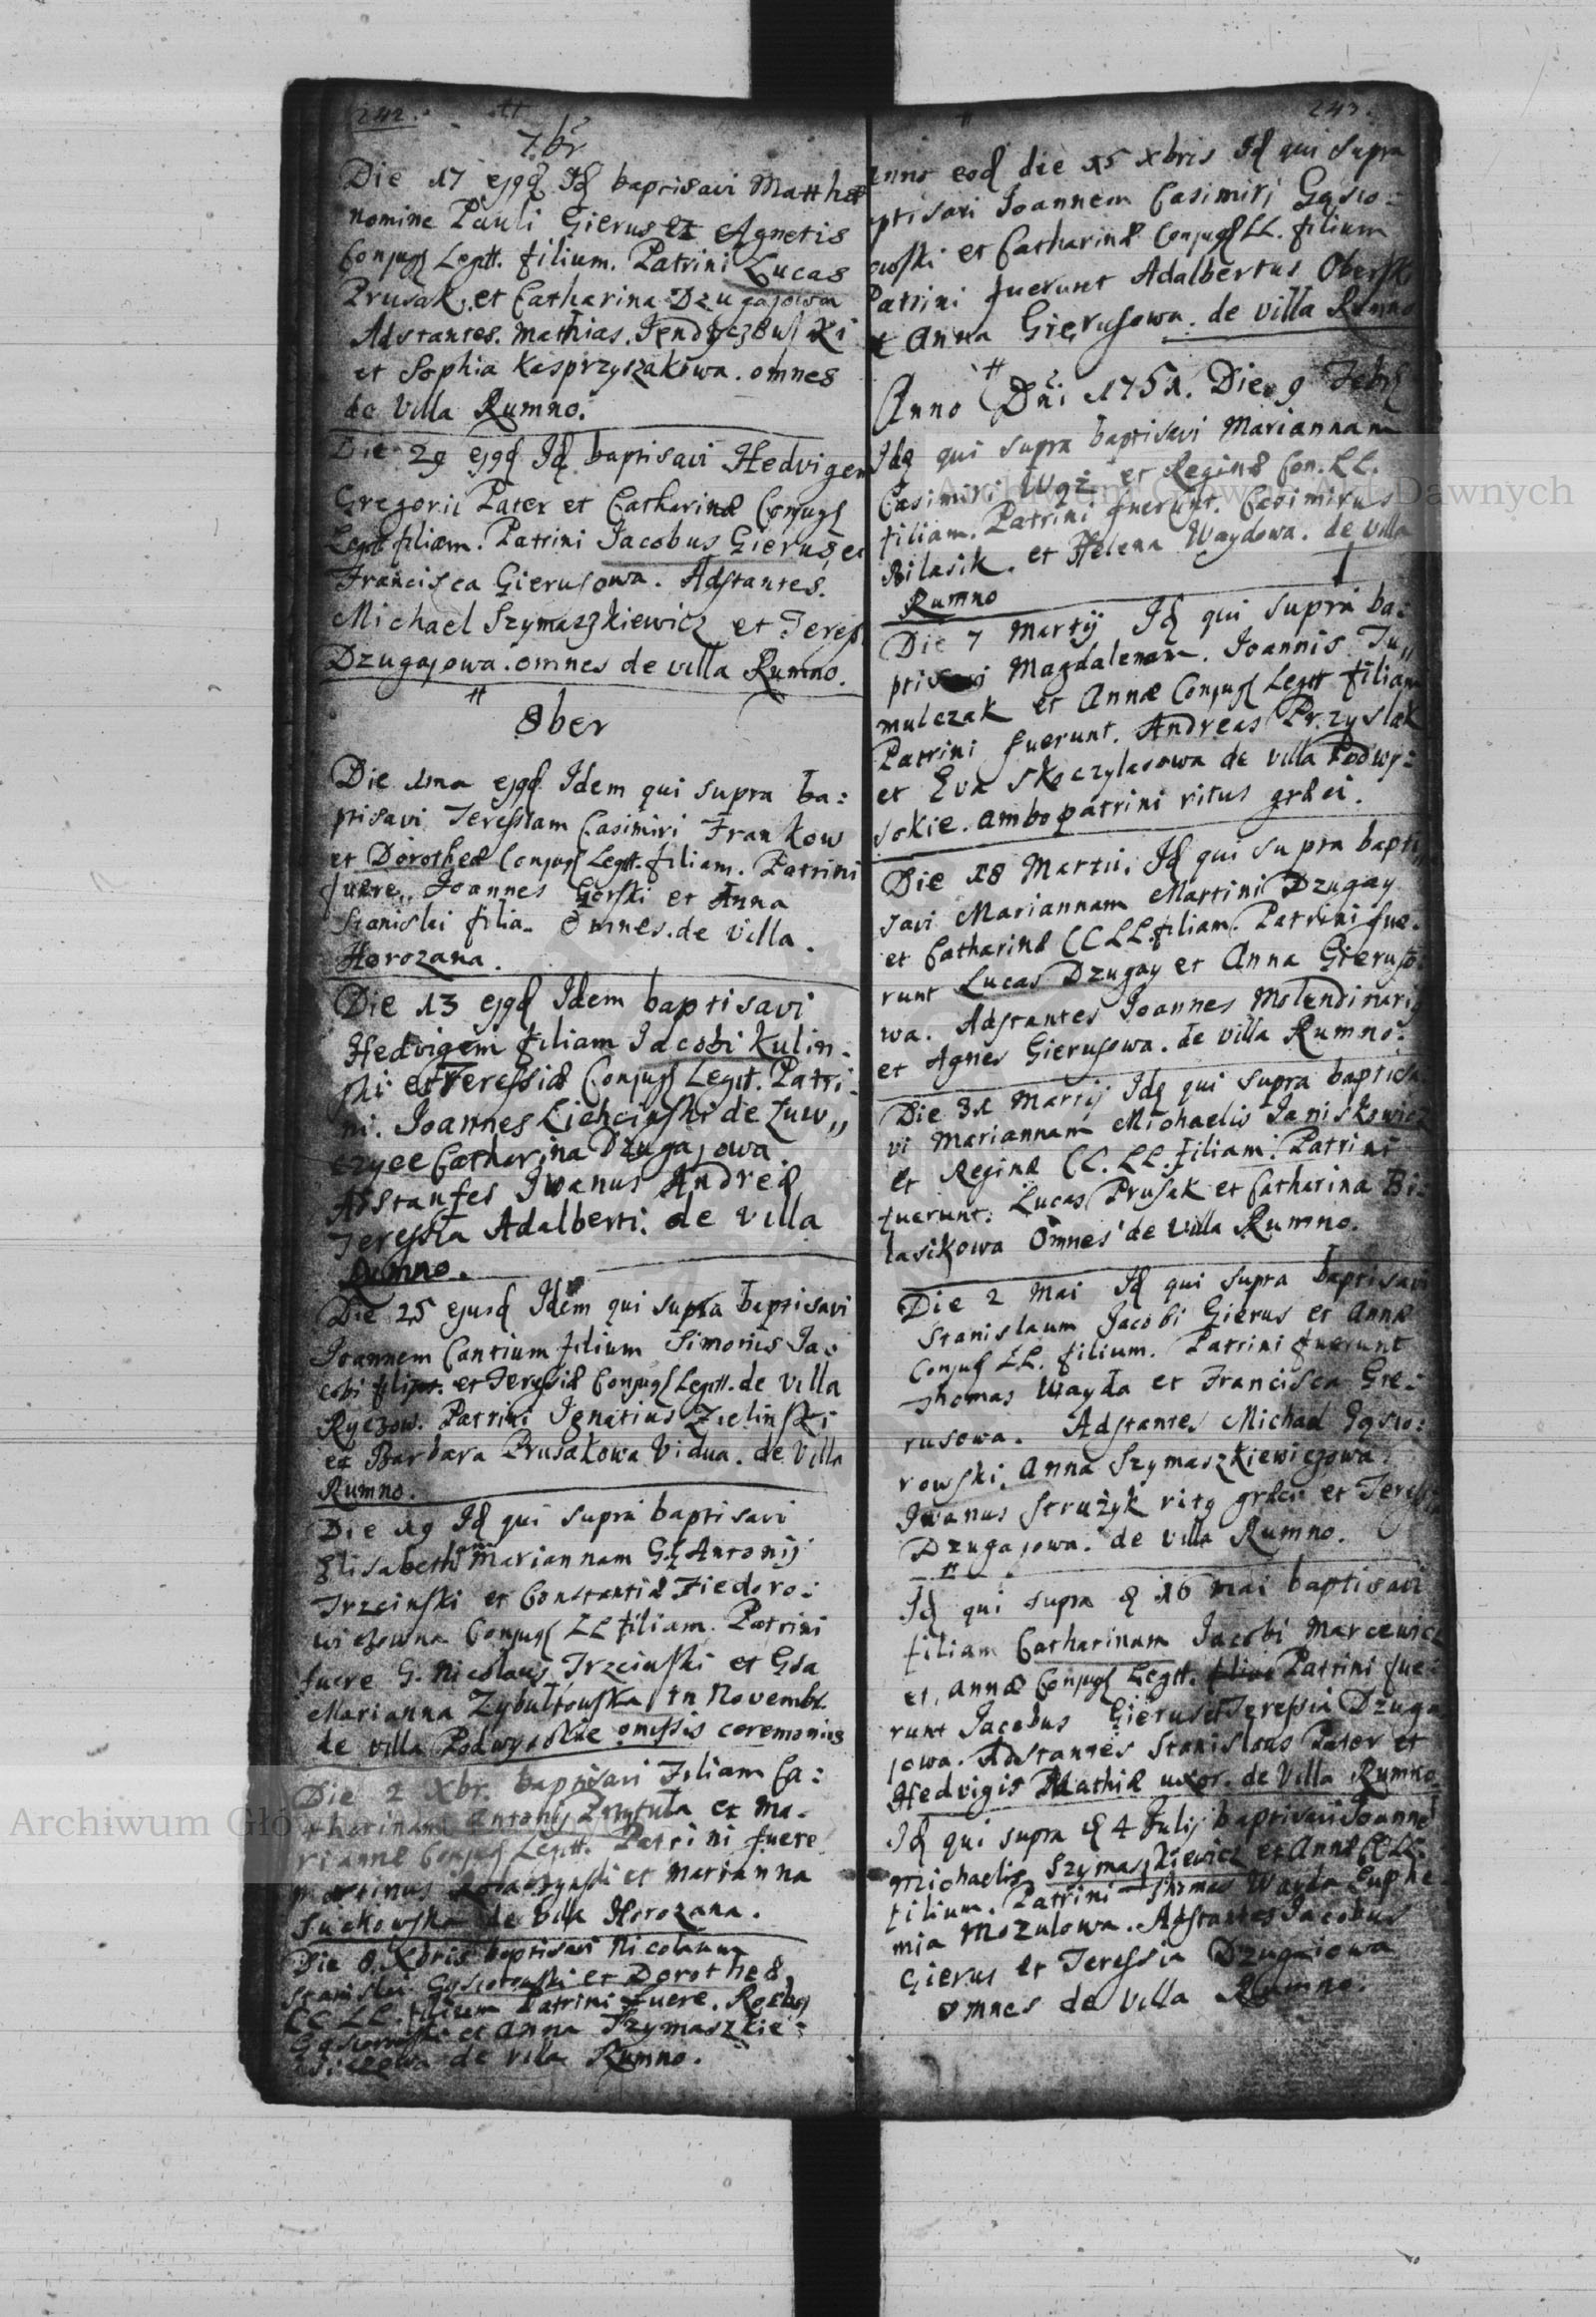 242.
7.br
Die 17 ejgq Iq baptisavi Matthæ
nomine Pauli Gierus et Agnetis
Conjug Legtt. filium. Patrini Lucas
Prusak, et Catharina Dzugajowa
Adstantes. Mathias.
et Sophia Kasprzyszakowa. omnes
de Villa Rumno.
Die 29 ejgq Iq baptisavi Hedvigem
Gregorii Pater et Catharinæ Conjug
Legtt filiam. Patrini Jacobus Gierus, et
Francisca Gierusowa. Adstantes.
Michael Szymaszkiewicz et Teress
Dzugajowa. omnes de villa Rumno.
8ber
Die 1ma ejgq Idem qui supra ba:
ptisavi Teressiam Casimiri Frankow
et Dorotheæ Conjug Legtt. filiam. Patrini
fuere,, Joannes Gorski et Anna
Stanislai filia. Omnes de Villa.
Horozana.
Die 13 ejgq Idem baptisavi
Hedvigem filiam Jacobi Kulin:
ski et Teressiæ Conjug Legtt. Patri:
ni. Joannes de
Catharina Dzugajowa.
Adstantes Iwanus Andreæ
Teressia Adalberti. de Villa
Rumno.
Die 25 ejusq Idem qui supra baptisavi
Joannem Cantium filium Simonis Ja:
cobi et Teressiæ Conjug Legtt. de Villa
Ryczow. Patrini Ignatius Zielinski
et Barbara Prusakowa Vidua. de Villa
Rumno.
Die 19 Iq qui supra baptisavi
Elisabetham Mariannam G. Antonij
Trzcinski et Constantiæ Fiedoro:
wiczowna Conjug LL filiam. Patrini
fuere G. Nicolaus Trzcinski et Gsa
Marianna Zybultowska in Novembr.
de villa Podwysokie omissis ceremoniis
Die 2 Xbr. baptisavi Filiam Ca:
tharinam Antonij Przytula et Ma.
riannæ Conjug Legtt. Patrini fuere
Martinus et Marianna
de Villa Horozana.
Die 8 Xbris baptisavi Nicolaum
Stanislai et Dorotheæ,
CC LL. filium Patrini fuere. Rochus
et Anna Szymaszkie:
wiczowa de villa Rumno.
243.
Anno eoq die 15 Xbris Iq qui supra
ptisavi Joannem Casimiri Gąsio:
owski et Catharinæ Conjug LL. filium
Patrini fuerunt Adalbertus Obers
et Anna Gierusowa. de villa Rumno
Anno Dni 1751. Die 9 Febr
Idq qui supra baptisavi Mariannam
Casimiri Wąż et Reginæ Con. LL.
filiam. Patrini fuerunt. Casimirus
Bilasik. et Helena Waydowa. de Villa
Rumno
Die 7 Martij Iq qui supra ba:
ptisavi Magdalenam. Joannis Tu,,
mulczak et Annæ Conjug Legtt filiam
Patrini fuerunt. Andreas Przyslak
et Eva Skoczylasowa de villa Podwy:
sokie. ambo patrini ritus græci.
Die 18 Martii. Iq qui supra bapti
savi Mariannam Martini Dzugay
et Catharinæ CC LL. filiam. Patrini fue.
runt Lucas Dzugay et Anna Gieruso
wa. Adstantes Joannes Molendinari
et Agnes Gierusowa. de villa Rumno.
Die 31 Martij Idq qui supra baptisa
vi Mariannam Michaelis Janiskowicz
et Reginæ CC. LL. filiam. Patrini
fuerunt: Lucas Prusak et Catharina Bi:
lasikowa Omnes de Villa Rumno.
Die 2 Mai Iq qui supra baptisavi
Stanislaum Jacobi Gierus et Annæ
Conjug LL. filium. Patrini fuerunt
Thomas Wayda et Francisca Gie:
rusowa. Adstantes Michael Gąsio:
rowski, Anna Szymaszkiewiczowa
Iwanus Strużyk ritq græci et Teressia
Dzugajowa. de villa Rumno.
Iq qui supra d 16 mai baptisavi
filiam Catharinam Jacobi Marcewicz
et, Annæ Conjug Legtt. Patrini fue:
runt Jacobus Gierus et Teressia Dzuga
jowa. Adstantes Stanislaus Pater et
Hedvigis Mathiæ uxor. de Villa Rumno
Iq qui supra d 4 Julij baptisavi Joannem
Michaelis Szymaszkiewicz et Annæ CC LL.
filium. Patrini Thomas Wayda Euphe
mia Mozulowa. Adstantes Jacobus
Gierus et Teressia Dzugaiowa
omnes de Villa Rumno.
Archiwum Główne Akt Dawnych
Archiwum Głów